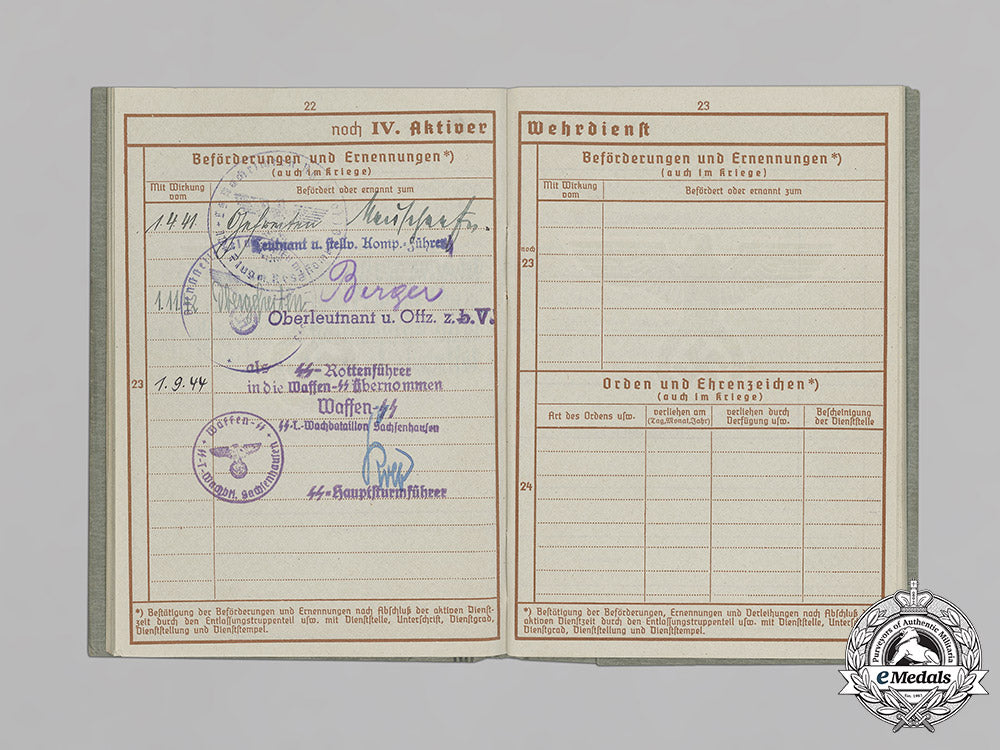 22
noch IV. Aktiver
Beförderungen und Ernennungen*)
(auch im Kriege)
Mit Wirkung vom
Befördert oder ernannt zum
1.4.41 Gefreiten
Leutnant u. stellv. Komp.-Führer
Berger
Oberleutnant u. Offz. z.b.V.
als SS-Rottenführer
23 1.9.44
in die Waffen-SS übernommen
Waffen-SS
SS-T.-Wachbataillon Sachsenhausen
Waffen-SS
SS-T.-Wachbtl. Sachsenhausen
SS-Hauptsturmführer
*) Bestätigung der Beförderungen und Ernennungen nach Abschluß der aktiven Dienst-
zeit durch den Entlassungstruppenteil usw. mit Dienststelle, Unterschrift, Dienstgrad,
Dienststellung und Dienststempel.
23
Wehrdienst
Beförderungen und Ernennungen*)
(auch im Kriege)
Mit Wirkung vom
Befördert oder ernannt zum
noch
23
Orden und Ehrenzeichen*)
(auch im Kriege)
Art des Ordens usw.
verliehen am
(Tag, Monat, Jahr)
verliehen durch
Verfügung usw.
Bescheinigung
der Dienststelle
24
*) Bestätigung der Beförderungen, Ernennungen und Verleihungen nach Abschluß
aktiven Dienstzeit durch den Entlassungstruppenteil usw. mit Dienststelle,
Dienstgrad, Dienststellung und Dienststempel.
Purveyors of Authentic Militaria
eMedals